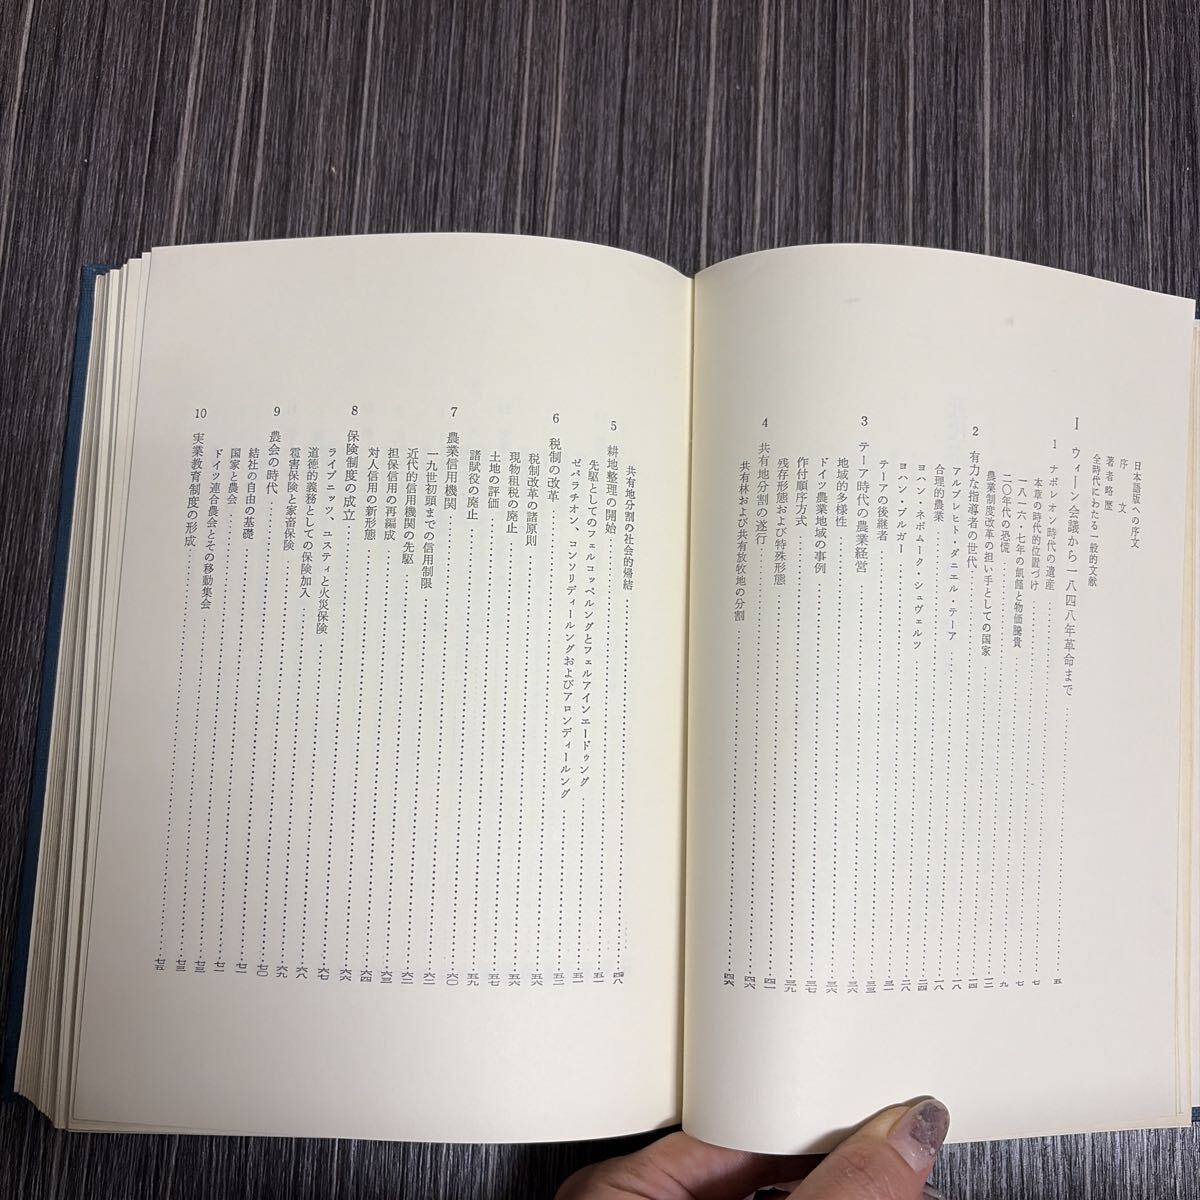 日本語版への序文
序文
著者略歴
全時代にわたる一般的文献
I ウィーン会議から一八四八年革命まで……五
1 ナポレオン時代の遺産……七
本章の時代的位置づけ……七
一八一六・七年の飢饉と物価騰貴……九
二〇年代の恐慌……一二
農業制度改革の担い手としての国家……一四
2 有力な指導者の世代……一八
アルブレヒト・ダニエル・テーア……一八
合理的農業……二四
ヨハン・ネポムーク・シュヴェルツ……二八
ヨハン・ブルガー……三一
テーアの後継者……三三
3 テーア時代の農業経営……三六
地域的多様性……三六
ドイツ農業地域の事例……三七
作付順序方式……三九
残存形態および特殊形態……四一
4 共有地分割の遂行……四一
共有林および共有放牧地の分割……四六
共有地分割の社会的帰結……四八
5 耕地整理の開始……五一
先駆としてのフェルコッペルングとフェルアインエードゥング……五一
ゼパラチオン、コンソリディールングおよびアロンディールング……五二
6 税制の改革……五六
税制改革の諸原則……五六
現物租税の廃止……五七
土地の評価……五九
諸賦役の廃止……六〇
7 農業信用機関……六二
一九世初頭までの信用制限……六二
近代的信用機関の先駆……六三
担保信用の再編成……六四
対人信用の新形態……六六
8 保険制度の成立……六七
ライプニッツ、ユスティと火災保険……六八
道徳的義務としての保険加入……六九
雹害保険と家畜保険……七〇
9 農会の時代……七一
結社の自由の基礎……七一
国家と農会……七三
ドイツ連合農会とその移動集会……七三
10 実業教育制度の形成……七五